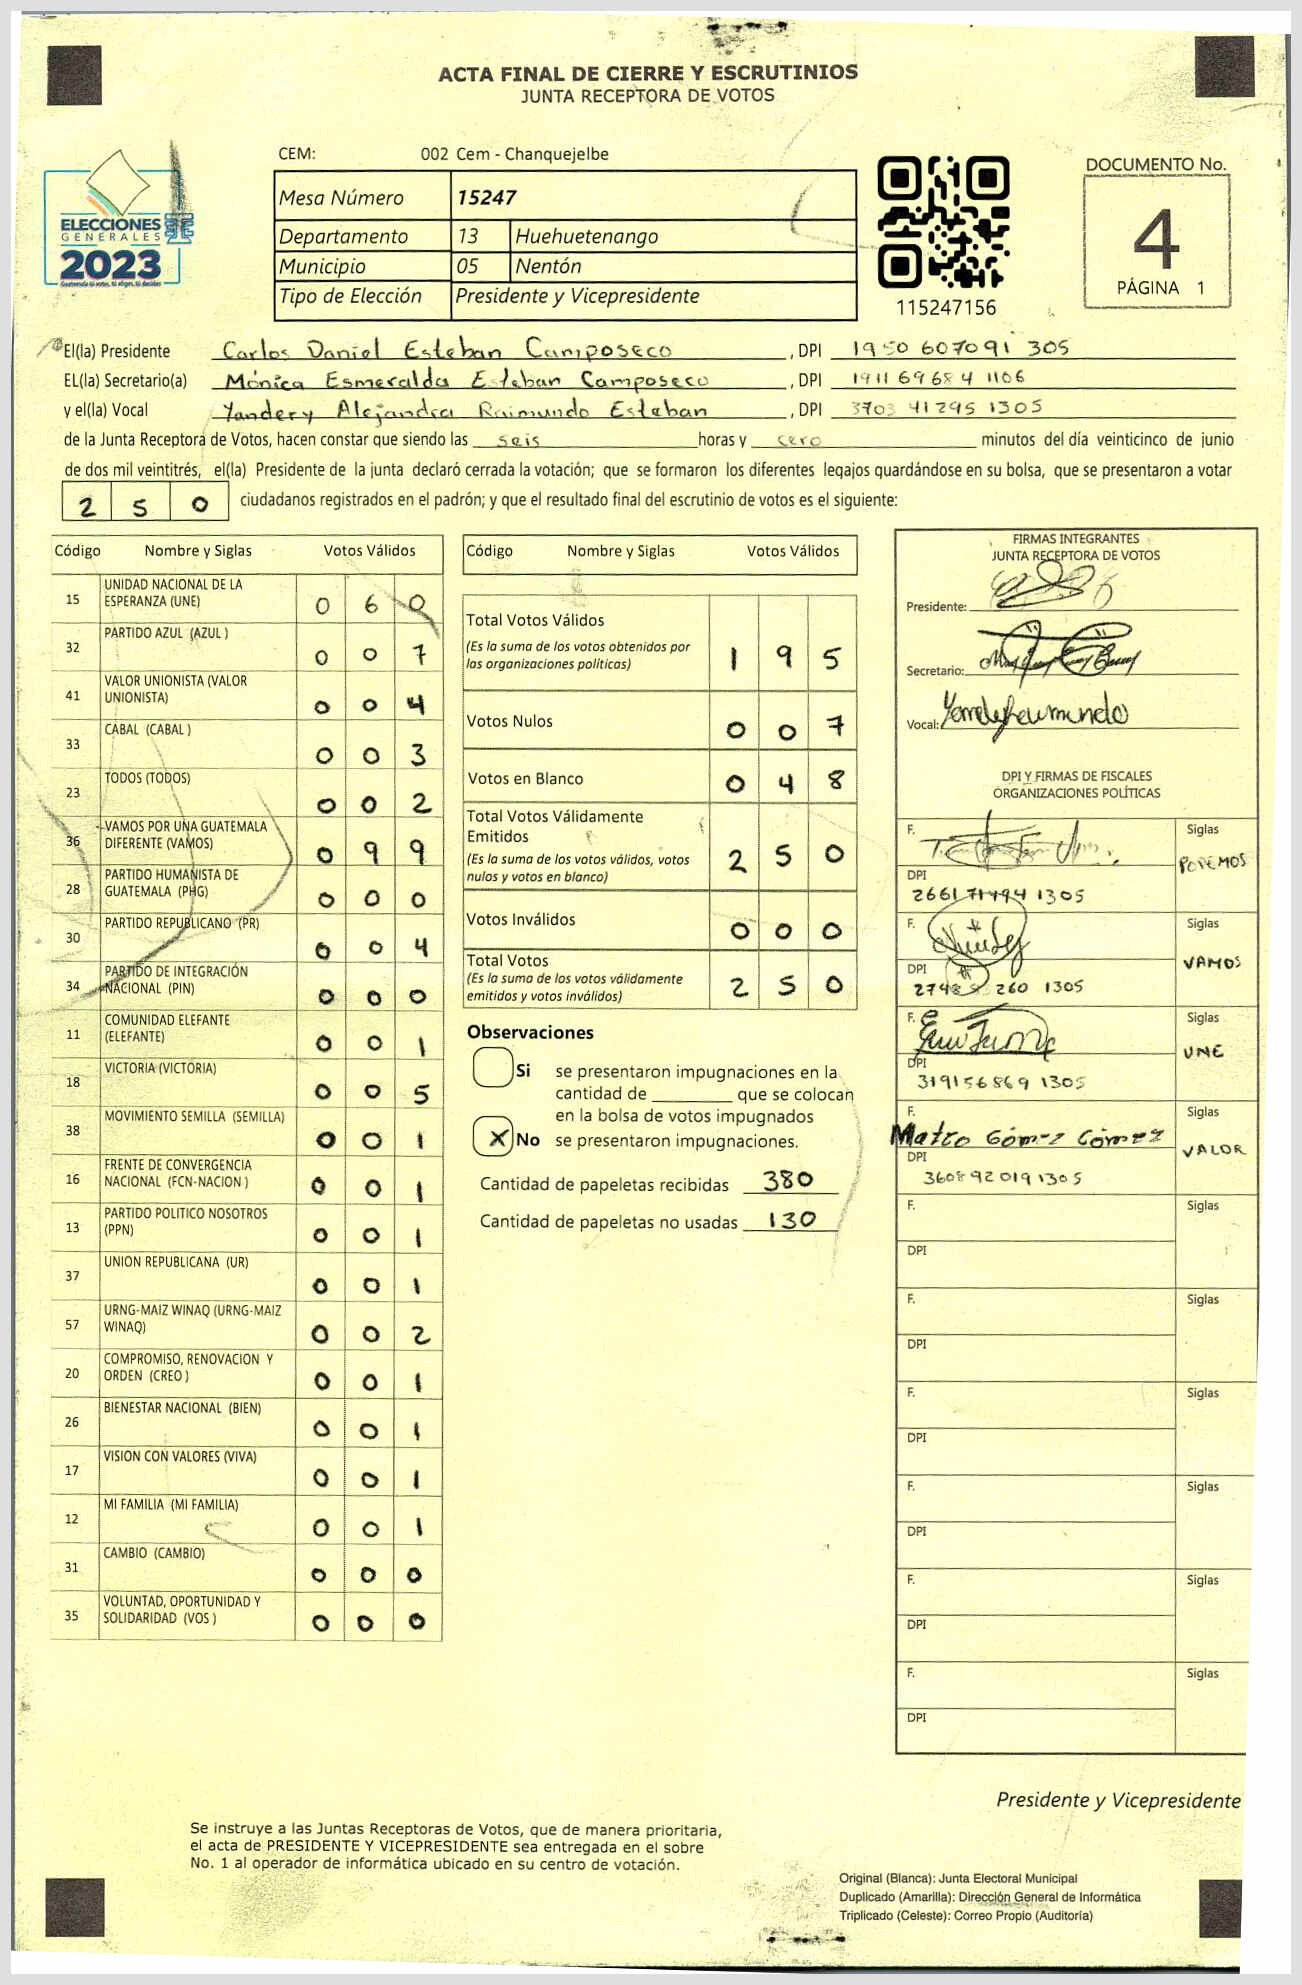 ACTA FINAL DE CIERRE Y ESCRUTINIOS
JUNTA RECEPTORA DE VOTOS
CEM: 002 Cem - Chanquejelbe
Mesa Número 15247
Departamento 13 Huehuetenango
Municipio 05 Nentón
Tipo de Elección Presidente y Vicepresidente
ELECCIONES
GENERALES
2023
115247156
DOCUMENTO No.
4
PÁGINA 1
El(la) Presidente Carlos Daniel Esteban Camposeco , DPI 1950 607091 305
EL(la) Secretario(a) Mónica Esmeralda Esteban Camposeco , DPI 1911 69684 1106
y el(la) Vocal Yandery Alejandra Raimundo Esteban , DPI 3703 41295 1305
de la Junta Receptora de Votos, hacen constar que siendo las seis horas y cero minutos del día veinticinco de junio
de dos mil veintitrés, el(la) Presidente de la junta declaró cerrada la votación; que se formaron los diferentes legajos quardándose en su bolsa, que se presentaron a votar
2 5 0 ciudadanos registrados en el padrón; y que el resultado final del escrutinio de votos es el siguiente:
Código Nombre y Siglas Votos Válidos
15 UNIDAD NACIONAL DE LA
ESPERANZA (UNE) 0 6 0
32 PARTIDO AZUL (AZUL ) 0 0 7
41 VALOR UNIONISTA (VALOR
UNIONISTA) 0 0 4
33 CABAL (CABAL ) 0 0 3
23 TODOS (TODOS) 0 0 2
36 VAMOS POR UNA GUATEMALA
DIFERENTE (VAMOS) 0 9 9
28 PARTIDO HUMANISTA DE
GUATEMALA (PHG) 0 0 0
30 PARTIDO REPUBLICANO (PR) 0 0 4
34 PARTIDO DE INTEGRACIÓN
NACIONAL (PIN) 0 0 0
11 COMUNIDAD ELEFANTE
(ELEFANTE) 0 0 1
18 VICTORIA (VICTORIA) 0 0 5
38 MOVIMIENTO SEMILLA (SEMILLA) 0 0 1
16 FRENTE DE CONVERGENCIA
NACIONAL (FCN-NACION ) 0 0 1
13 PARTIDO POLITICO NOSOTROS
(PPN) 0 0 1
37 UNION REPUBLICANA (UR) 0 0 1
57 URNG-MAIZ WINAQ (URNG-MAIZ
WINAQ) 0 0 2
20 COMPROMISO, RENOVACION Y
ORDEN (CREO ) 0 0 1
26 BIENESTAR NACIONAL (BIEN) 0 0 1
17 VISION CON VALORES (VIVA) 0 0 1
12 MI FAMILIA (MI FAMILIA) 0 0 1
31 CAMBIO (CAMBIO) 0 0 0
35 VOLUNTAD, OPORTUNIDAD Y
SOLIDARIDAD (VOS ) 0 0 0
Código Nombre y Siglas Votos Válidos
Total Votos Válidos
(Es la suma de los votos obtenidos por
las organizaciones políticas) 1 9 5
Votos Nulos 0 0 7
Votos en Blanco 0 4 8
Total Votos Válidamente
Emitidos
(Es la suma de los votos válidos, votos
nulos y votos en blanco) 2 5 0
Votos Inválidos 0 0 0
Total Votos
(Es la suma de los votos válidamente
emitidos y votos inválidos) 2 5 0
Observaciones
Si se presentaron impugnaciones en la
cantidad de ________ que se colocan
en la bolsa de votos impugnados
X No se presentaron impugnaciones.
Cantidad de papeletas recibidas 380
Cantidad de papeletas no usadas 130
FIRMAS INTEGRANTES
JUNTA RECEPTORA DE VOTOS
Presidente:
Secretario:
Vocal:
DPI Y FIRMAS DE FISCALES
ORGANIZACIONES POLÍTICAS
F. Siglas
PODEMOS
DPI
2661 71494 1305
F. Siglas
VAMOS
DPI
260 1305
F. Siglas
UNE
DPI
319156869 1305
F. Siglas
Mateo Gómez Gómez
VALOR
DPI
3608920191305
F. Siglas
DPI
F. Siglas
DPI
F. Siglas
DPI
F. Siglas
DPI
F. Siglas
DPI
F. Siglas
DPI
Presidente y Vicepresidente
Se instruye a las Juntas Receptoras de Votos, que de manera prioritaria,
el acta de PRESIDENTE Y VICEPRESIDENTE sea entregada en el sobre
No. 1 al operador de informática ubicado en su centro de votación.
Original (Blanca): Junta Electoral Municipal
Duplicado (Amarilla): Dirección General de Informática
Triplicado (Celeste): Correo Propio (Auditoría)